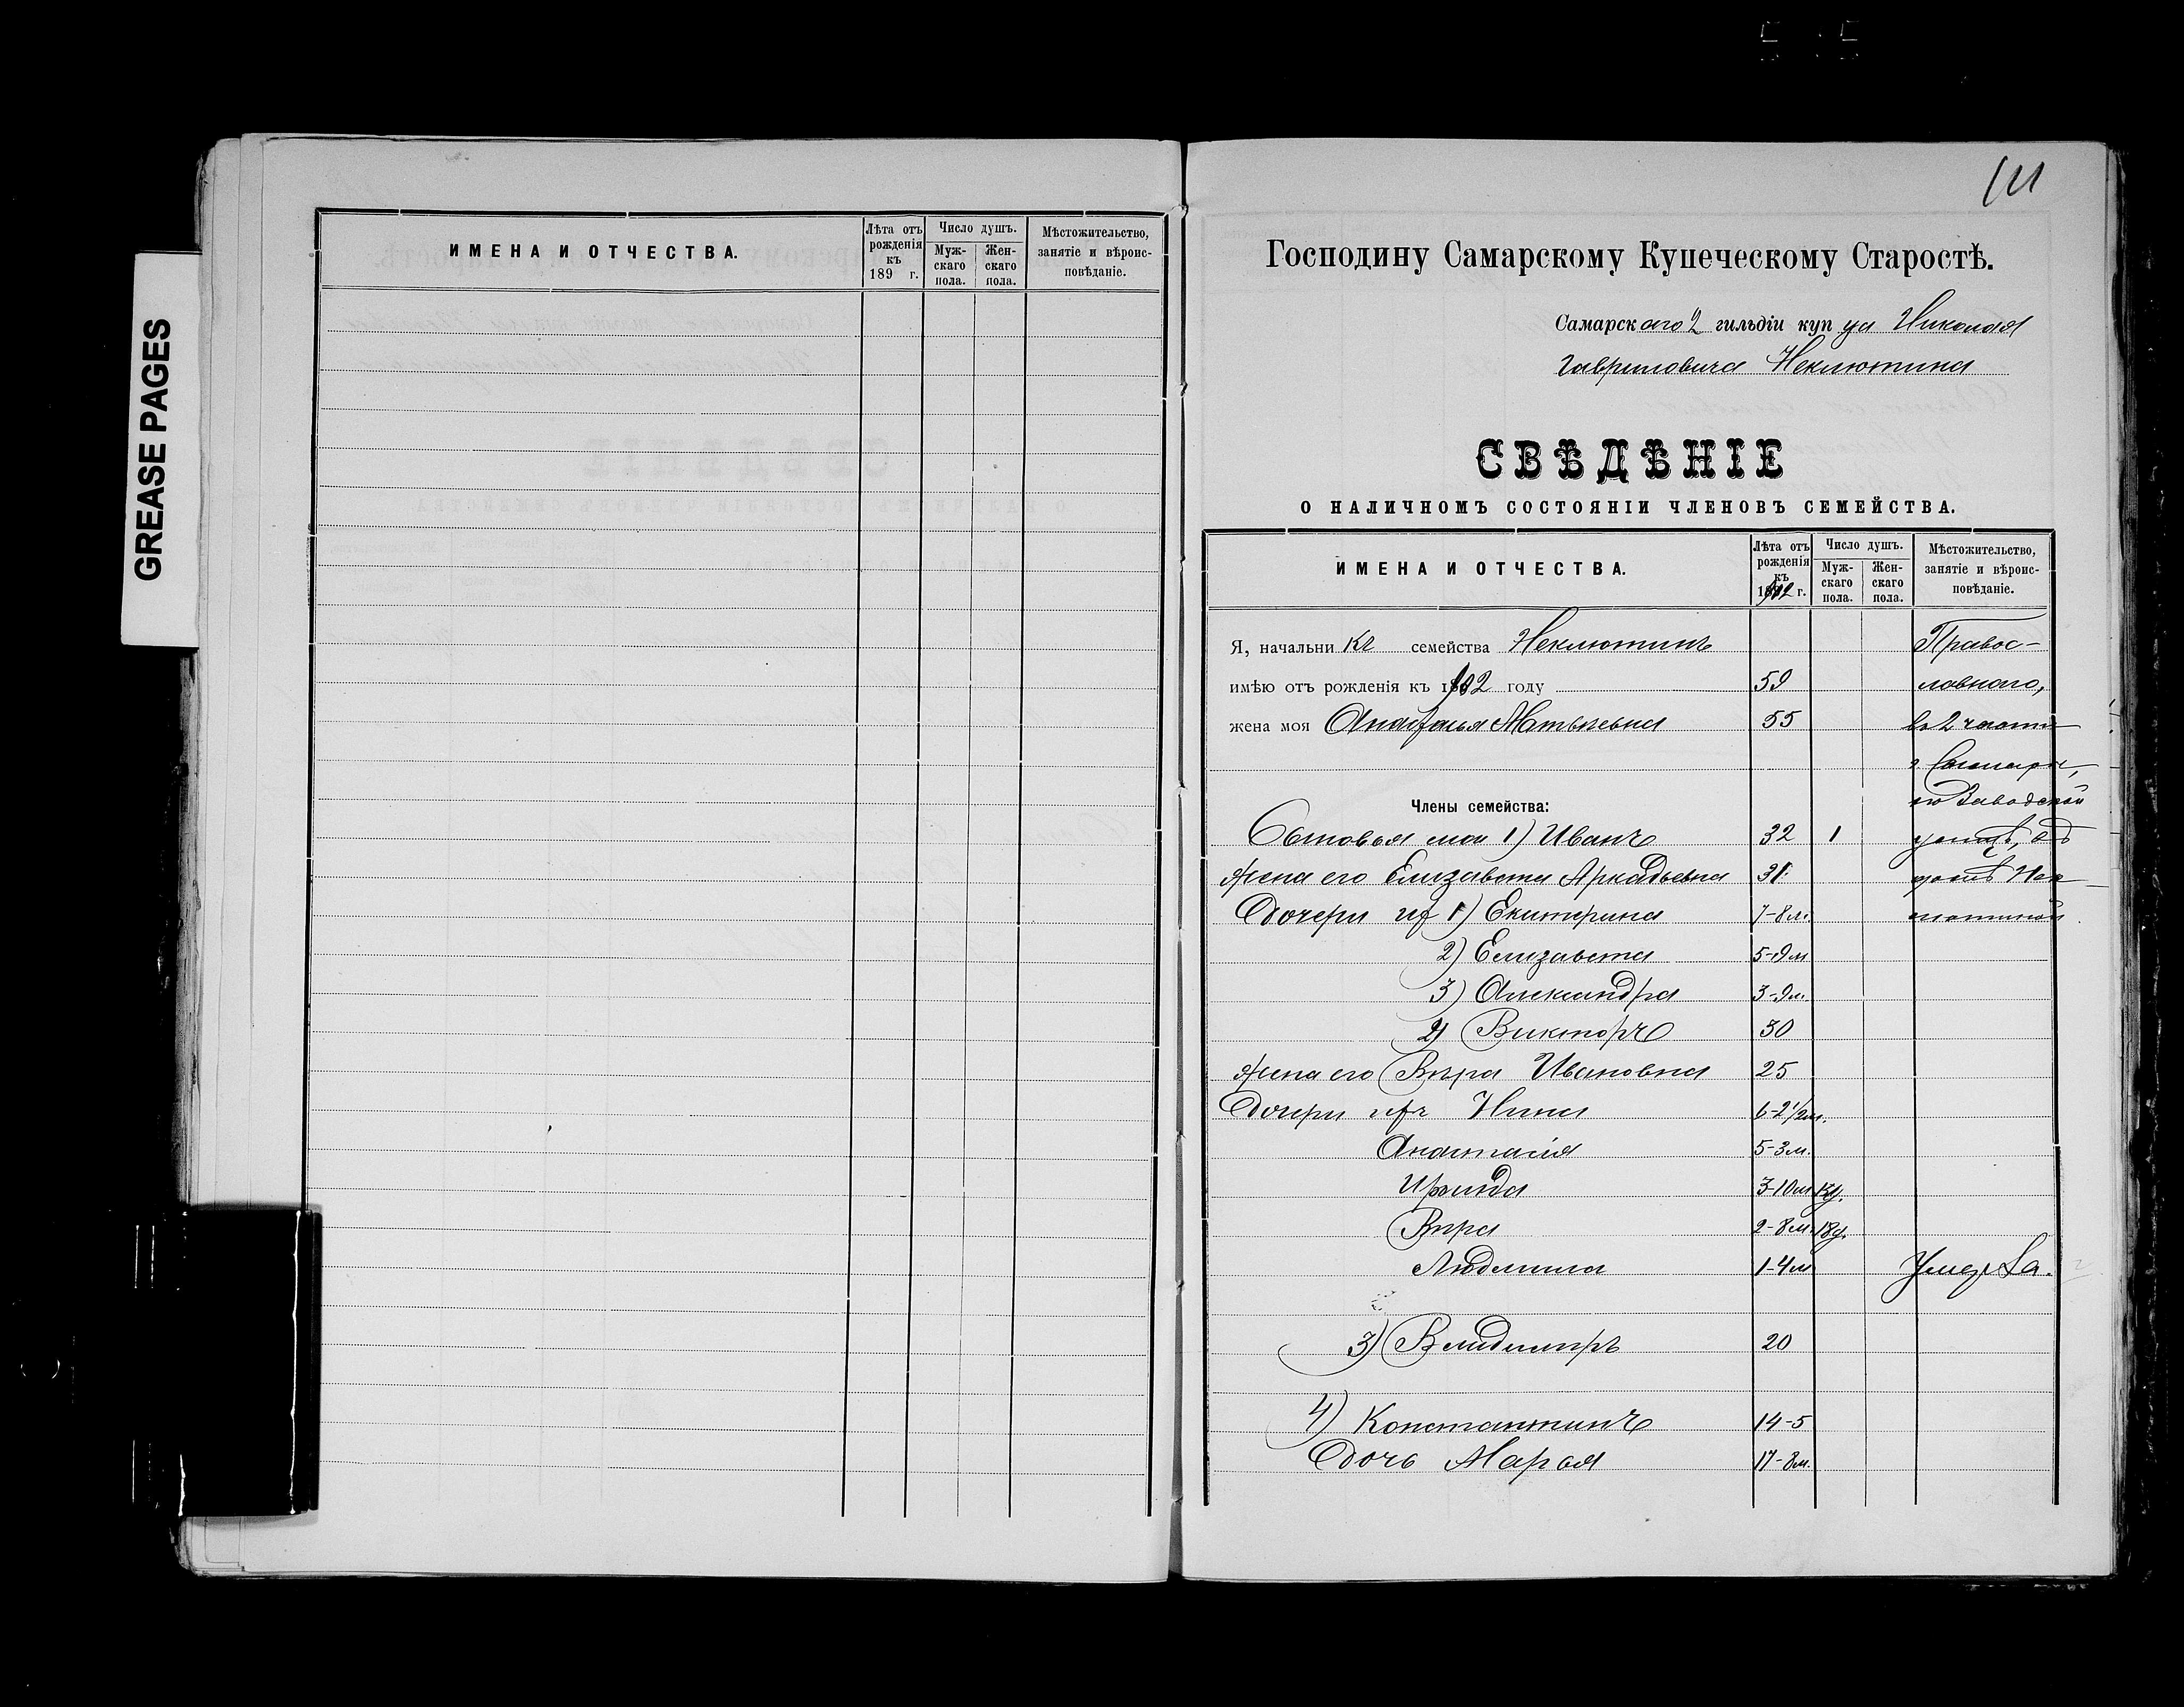 GREASE PAGES
ИМЕНА И ОТЧЕСТВА.
Лѣта отъ рожденія къ 189 г.
Число душъ.
Муж-скаго пола.
Жен-скаго пола.
Мѣстожительство, занятіе и вѣроис-повѣданіе.
111
Господину Самарскому Купеческому Старостѣ.
Самарскаго 2 гильдіи купца Николая
Гавриловича Неклютина
СВѢДѢНІЕ
О НАЛИЧНОМЪ СОСТОЯНІИ ЧЛЕНОВЪ СЕМЕЙСТВА.
ИМЕНА И ОТЧЕСТВА.
Лѣта отъ рожденія къ 1902 г.
Число душъ.
Муж-скаго пола.
Жен-скаго пола.
Мѣстожительство, занятіе и вѣроис-повѣданіе.
Я, начальникъ семейства Неклютинъ Правос-
имѣю отъ рожденія къ 1902 году 59 лавнаго,
жена моя Матвѣевна 55 во 2 части
г. Самары,
Члены семейства: по Заводской
Сыновья мои 1) Иванъ 32 1 улицѣ, въ
Жена его Елизавета Аркадьевна 31 домѣ Нек
Дочери ихъ 1) Екатерина 7-8 м. лютиной
2) Елизавета 5-9 м
3) Александра 3-9 м.
2) Викторъ 30
Жена его Вѣра Ивановна 25
Дочери ихъ Нина 6-2 1/2 м.
Анастасія 5-3 м.
3-10 м
Вѣра 2-8 м. 18д.
Людмила 1-4 м Умерла.
3) Владиміръ 20
4) Константинъ 14-5
Дочь Марья 17-8 м.